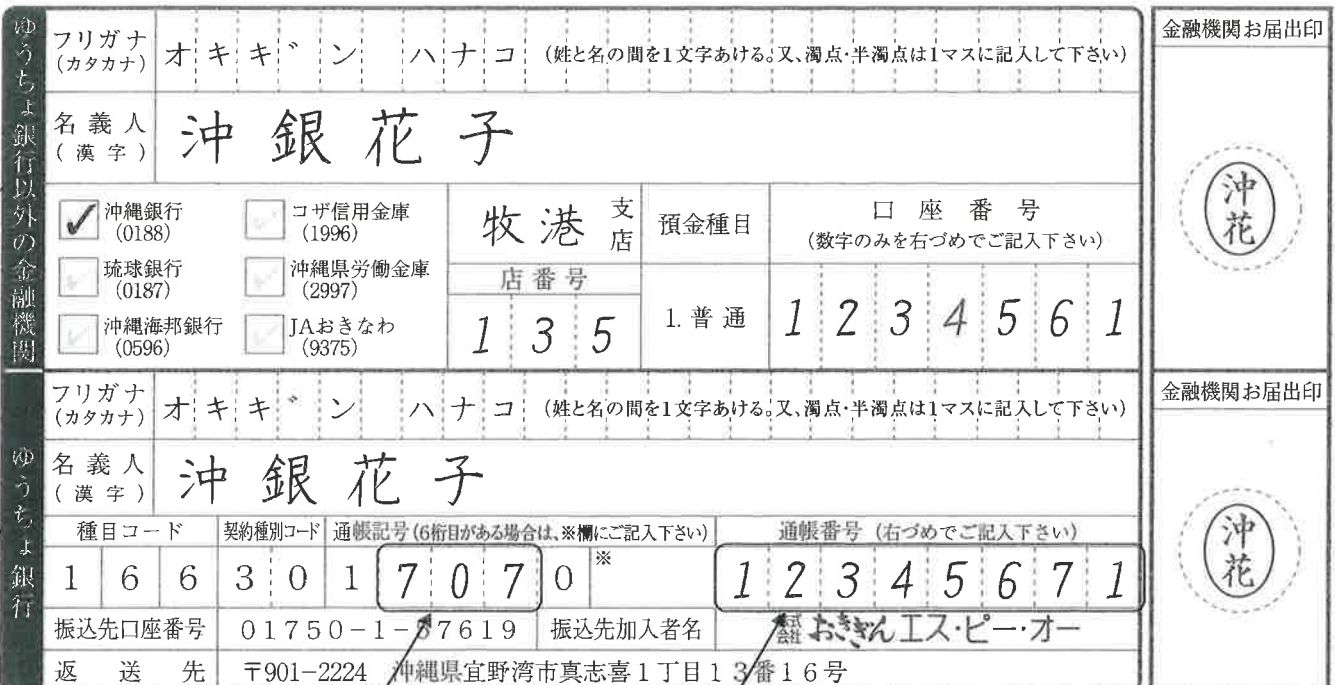 ゆうちょ銀行以外の金融機関
フリガナ
(カタカナ)
オキキ゛ン ハナコ (姓と名の間を1文字あける。又、濁点・半濁点は1マスに記入して下さい)
金融機関お届出印
名義人
(漢字)
沖銀花子
沖花
✓ 沖縄銀行
(0188)
コザ信用金庫
(1996)
琉球銀行
(0187)
沖縄県労働金庫
(2997)
沖縄海邦銀行
(0596)
JAおきなわ
(9375)
牧港 支店
店番号
135
預金種目
1.普通
口座番号
(数字のみを右づめでご記入下さい)
1234561
ゆうちょ銀行
フリガナ
(カタカナ)
オキキ゛ン ハナコ (姓と名の間を1文字あける。又、濁点・半濁点は1マスに記入して下さい)
金融機関お届出印
名義人
(漢字)
沖銀花子
沖花
種目コード
166
契約種別コード
30
通帳記号(6桁目がある場合は、※欄にご記入下さい)
17070 ※
通帳番号 (右づめでご記入下さい)
12345671
振込先口座番号 01750-1-87619 振込先加入者名 株式会社 おきぎんエス・ピー・オー
返送先 〒901-2224 沖縄県宜野湾市真志喜1丁目13番16号